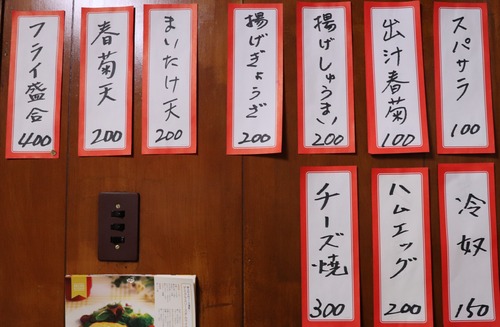 スパサラ
100
出汁春菊
100
揚げしゅうまい
200
揚げぎょうざ
200
まいたけ天
200
春菊天
200
フライ盛合
400
冷奴
150
ハムエッグ
200
チーズ焼
300